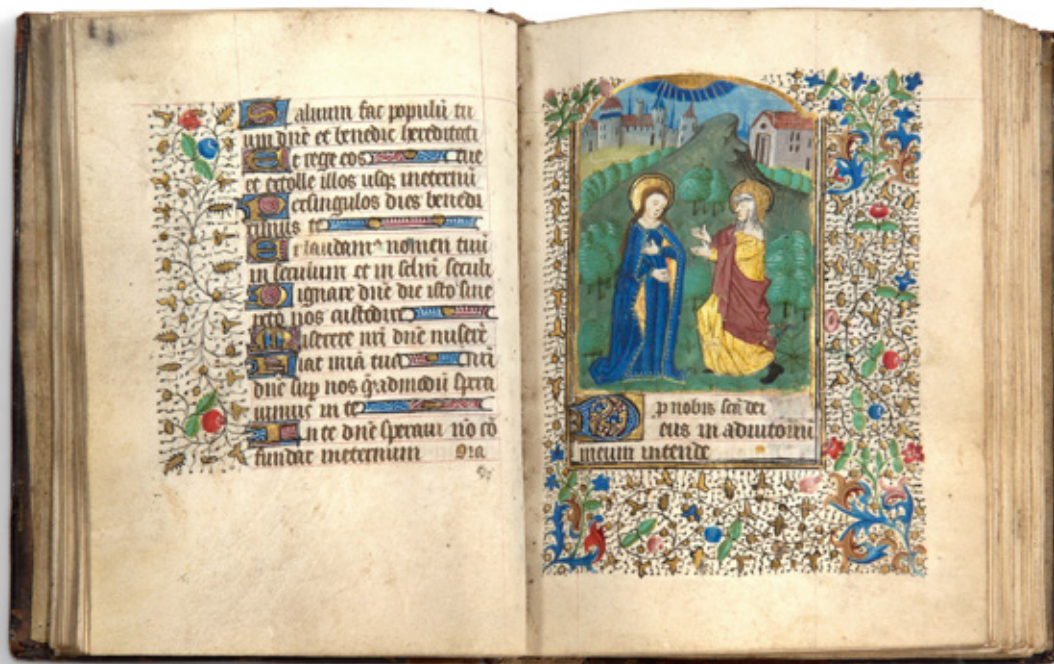 Saluum fac populū tu
um dñe et benedic hereditati
Et rege eos tue
et extolle illos usq; ineternū
Per singulos dies benedi
cimus te
Et laudamꝰ nomen tuū
in seculum et in sclm̄ seculi
Dignare dñe die isto sine
pctō nos custodire
Miserere nr̄i dñe miserē
Fiat mīa tua nr̄i
dñe sup nos q̄admodū spera
uimus in te
In te dñe speraui nō cō
fundar ineternum Ora
p nobis scā dei
Deus in adiutoriū
meum intende